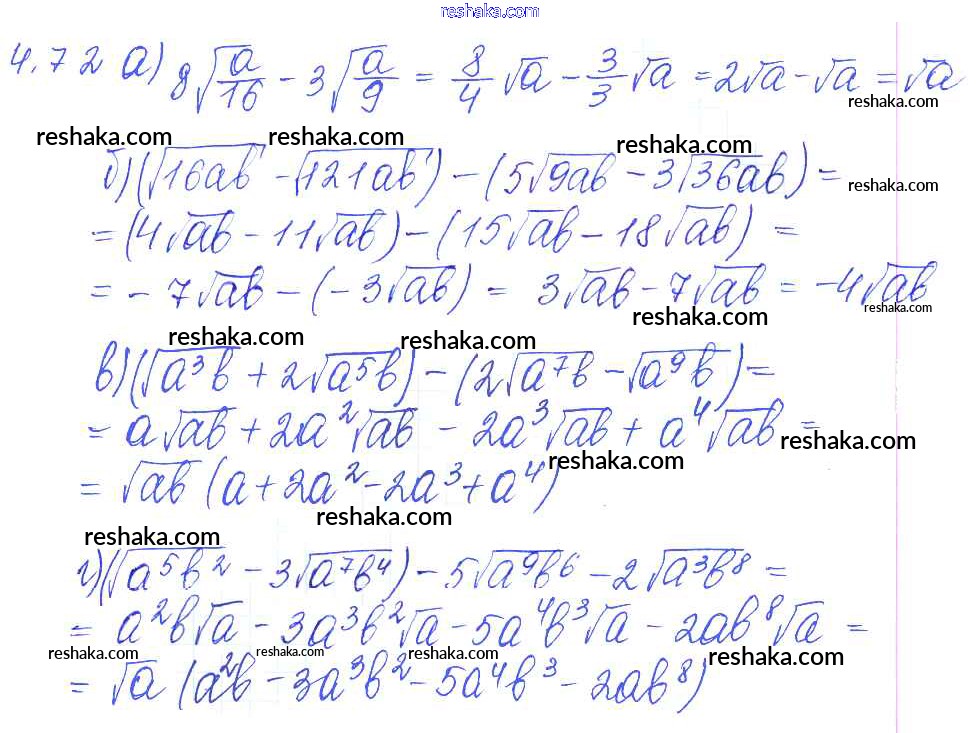 reshaka.com
4.72 а) 8√(a/16) - 3√(a/9) = 8/4 √a - 3/3 √a = 2√a - √a = √a
reshaka.com
reshaka.com reshaka.com reshaka.com
б) (√16ab - √121ab) - (5√9ab - 3√36ab) =
reshaka.com
= (4√ab - 11√ab) - (15√ab - 18√ab) =
= - 7√ab - (-3√ab) = 3√ab - 7√ab = -4√ab
reshaka.com reshaka.com reshaka.com reshaka.com
в) (√a³b + 2√a⁵b) - (2√a⁷b - √a⁹b) =
= a√ab + 2a²√ab - 2a³√ab + a⁴√ab =
reshaka.com reshaka.com
= √ab (a + 2a² - 2a³ + a⁴)
reshaka.com
reshaka.com reshaka.com
г) (√a⁵b² - 3√a⁷b⁴) - 5√a⁹b⁶ - 2√a³b⁸ =
= a²b√a - 3a³b²√a - 5a⁴b³√a - 2ab⁸√a =
reshaka.com reshaka.com reshaka.com reshaka.com
= √a (a²b - 3a³b² - 5a⁴b³ - 2ab⁸)